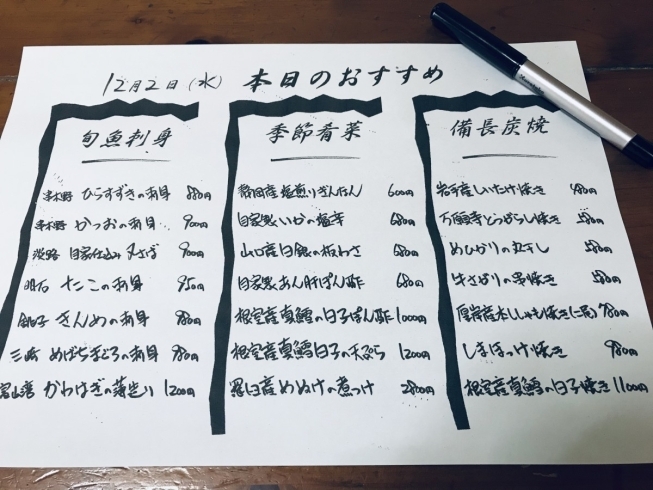 12月2日(水) 本日のおすすめ
旬魚刺身
串木野 ひらすずきの刺身 880円
串木野 かつおの刺身 900円
淡路 自家仕込み〆さば 900円
明石 たこの刺身 950円
銚子 きんめの刺身 980円
三崎 めばちまぐろの刺身 980円
かわはぎの薄造り 1200円
季節肴菜
静岡産塩煎りぎんなん 600円
自家製いかの塩辛 680円
山口産白銀の板わさ 680円
自家製あん肝ぽん酢 680円
根室産真鱈の白子ぽん酢 1000円
根室産真鱈白子の天ぷら 1200円
羅臼産めぬけの煮つけ 2800円
備長炭焼
岩手産しいたけ焼き 480円
万願寺とうがらし焼き 580円
めひかりの丸干し 580円
牛さがりの串焼き 580円
厚岸産本ししゃも焼き(二尾) 780円
しまほっけ焼き 980円
根室産真鱈の白子焼き 1100円